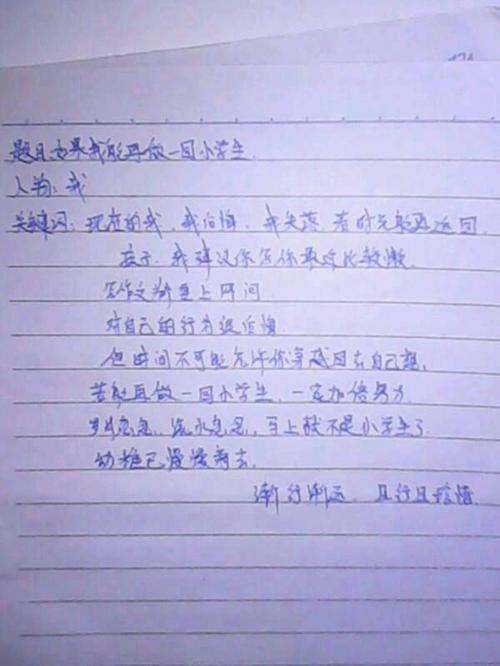 题目如果我能再做一回小学生.
人物:我
关键词:现在的我,我后悔,我失落,若时光能再返回
孩子,我建议你写你最近比较懒.
写作文都要上网问
对自己的行为很后悔
但时间不可能允许你穿越回去自己想,
若能再做一回小学生,一定加倍努力.
时光忽忽,流水忽忽,马上就不是小学生了.
幼稚已慢慢离去.
渐行渐远,且行且珍惜